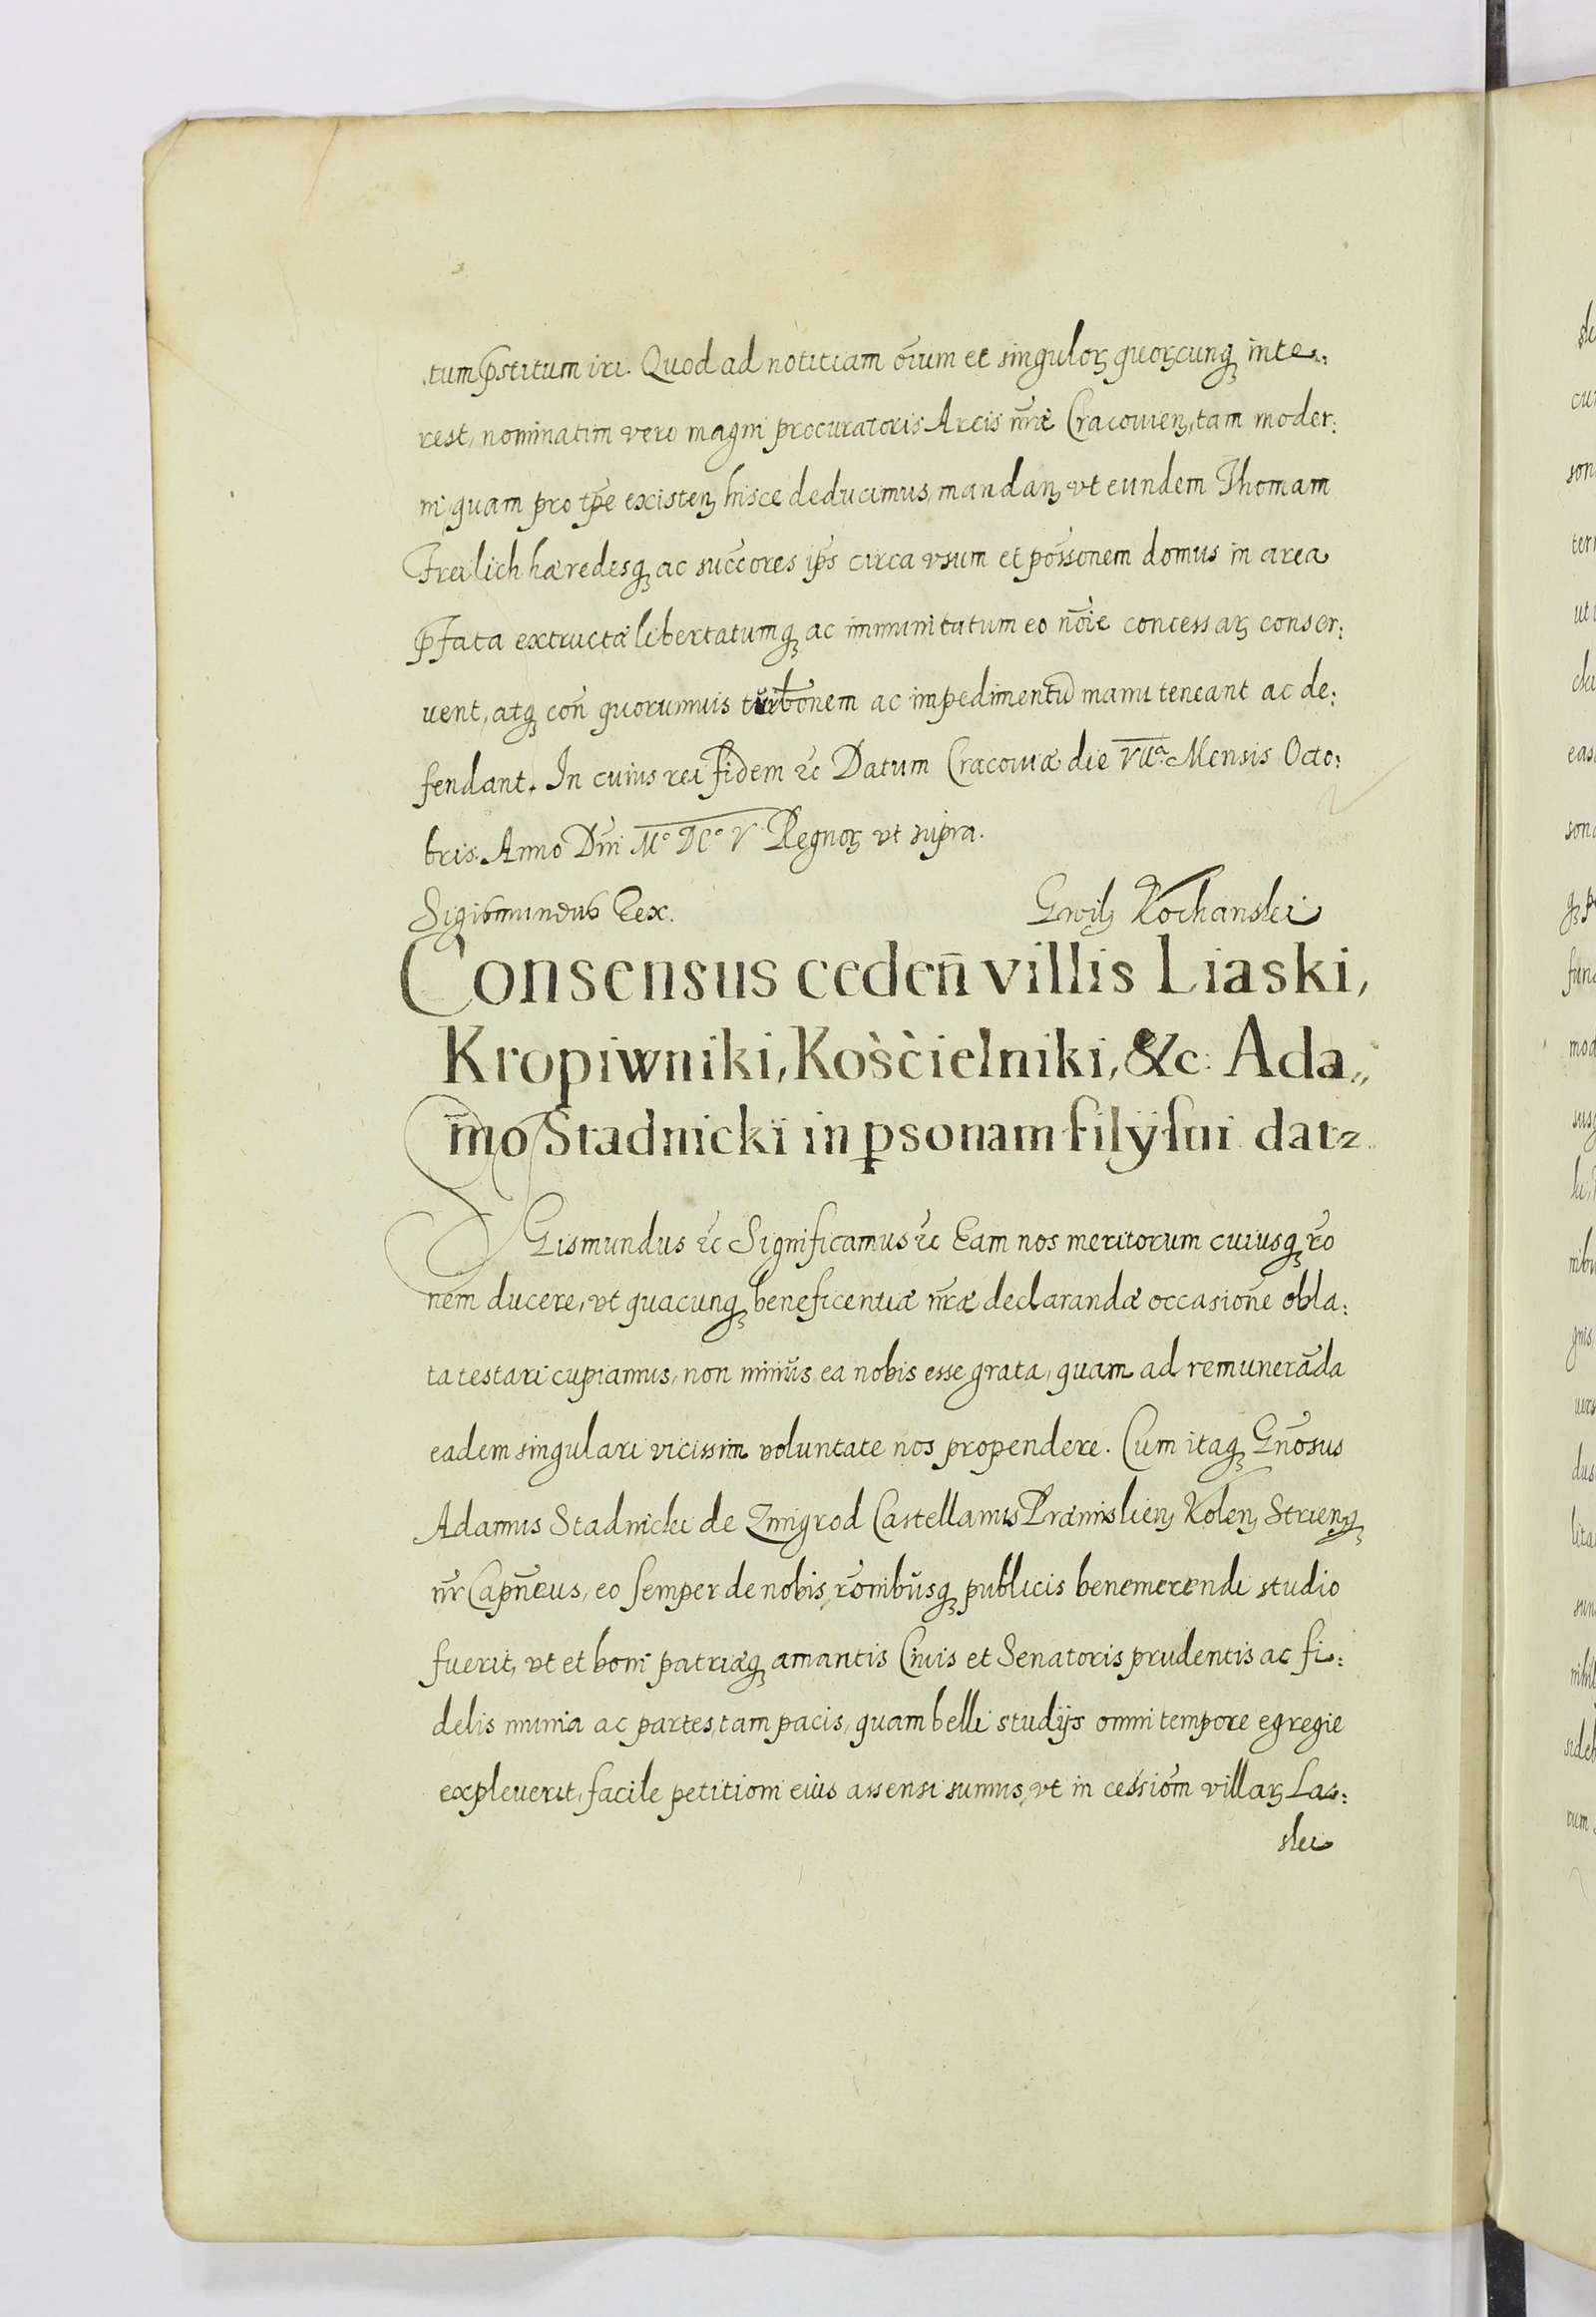 tum p̄stitum iri. Quod ad notitiam oīum et singuloꝝ quoꝝcunqꝫ inte:
rest, nominatim vero magni procuratoris Arcis nr̄æ Cracouienꝫ, tam moder:
ni, quam pro tp̄e existenꝫ hisce deducimus, mandanꝫ vt eundem Thomam
Freilich hæredesqꝫ ac succ̄ores ip̄s circa vsum et posso̅nem domus in area
p̄fata extructæ libertatumqꝫ ac immunitatum eo no̅ie concessaꝝ conser:
uent, atqꝫ con̄ quorumuis turbo̅nem ac impedimentū manu teneant ac de:
fendant. In cuius rei fidem ꝛc Datum Cracouiæ die VIIa. Mensis Octo:
bris. Anno Dn̄i Mº DCº V Regnoꝝ vt supra.
Sigismundus Rex. Gwilꝫ Kochanski
Consensus ceden̄ villis Liaski,
Kropiwniki, Kościelniki, &c: Ada„
mo Stadnicki in ꝑsonam filÿ sui datꝫ
SIGismundus ꝛc Significamus ꝛc Eam nos meritorum cuiusqꝫ ro̅
nem ducere, vt quacunqꝫ beneficentiæ nr̄æ declarandæ occasione̅ obla:
ta testari cupiamus, non minŭs ea nobis esse grata, quam ad remunerāda
eadem singulari vicissim voluntate nos propendere. Cum itaqꝫ Gn̄osus
Adamus Stadnicki de Zmigrod Castellanus Præmislienꝫ Kolenꝫ Strienqꝫ
nr̄ Capn̄eus, eo semper de nobis, ro̅nibŭsqꝫ publicis benemerendi studio
fuerit, vt et boni patriæqꝫ amantis Ciuis et Senatoris prudentis ac fi:
delis munia ac partes, tam pacis, quam belli studijs omni tempore egregie
expleuerit, facile petitioni eiŭs assensi sumus, vt in cessio̅m villaꝝ Las:
ski